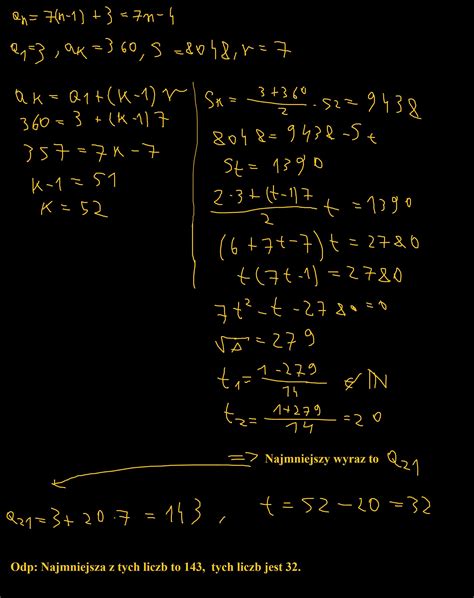 an = 7(n-1) + 3 = 7n - 4
a1 = 3, aK = 360, S = 8048, r = 7
aK = a1 + (K-1) r
360 = 3 + (K-1) 7
357 = 7K - 7
K-1 = 51
K = 52
SK = (3+360)/2 · 52 = 9438
8048 = 9438 - St
St = 1390
(2·3+(t-1)7)/2 t = 1390
(6+7t-7) t = 2780
t(7t-1) = 2780
7t² - t - 2780 = 0
√Δ = 279
t1 = (1-279)/14 ∉ N
t2 = (1+279)/14 = 20
=> Najmniejszy wyraz to a21
a21 = 3 + 20·7 = 143, t = 52 - 20 = 32
Odp: Najmniejsza z tych liczb to 143, tych liczb jest 32.